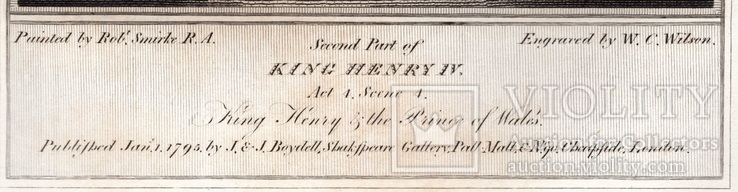 Painted by Robt. Smirke R. A.
Second Part of
Engraved by W. C. Wilson.
KING HENRY IV.
Act 4. Scene 4.
King Henry & the Prince of Wales.
Publish'd Jan. 1. 1795, by J. & J. Boydell, Shakspeare Gallery, Pall Mall, & No. 90, Cheapside, London.
VIOLITY
Auction for Collectors
auction.violity.com